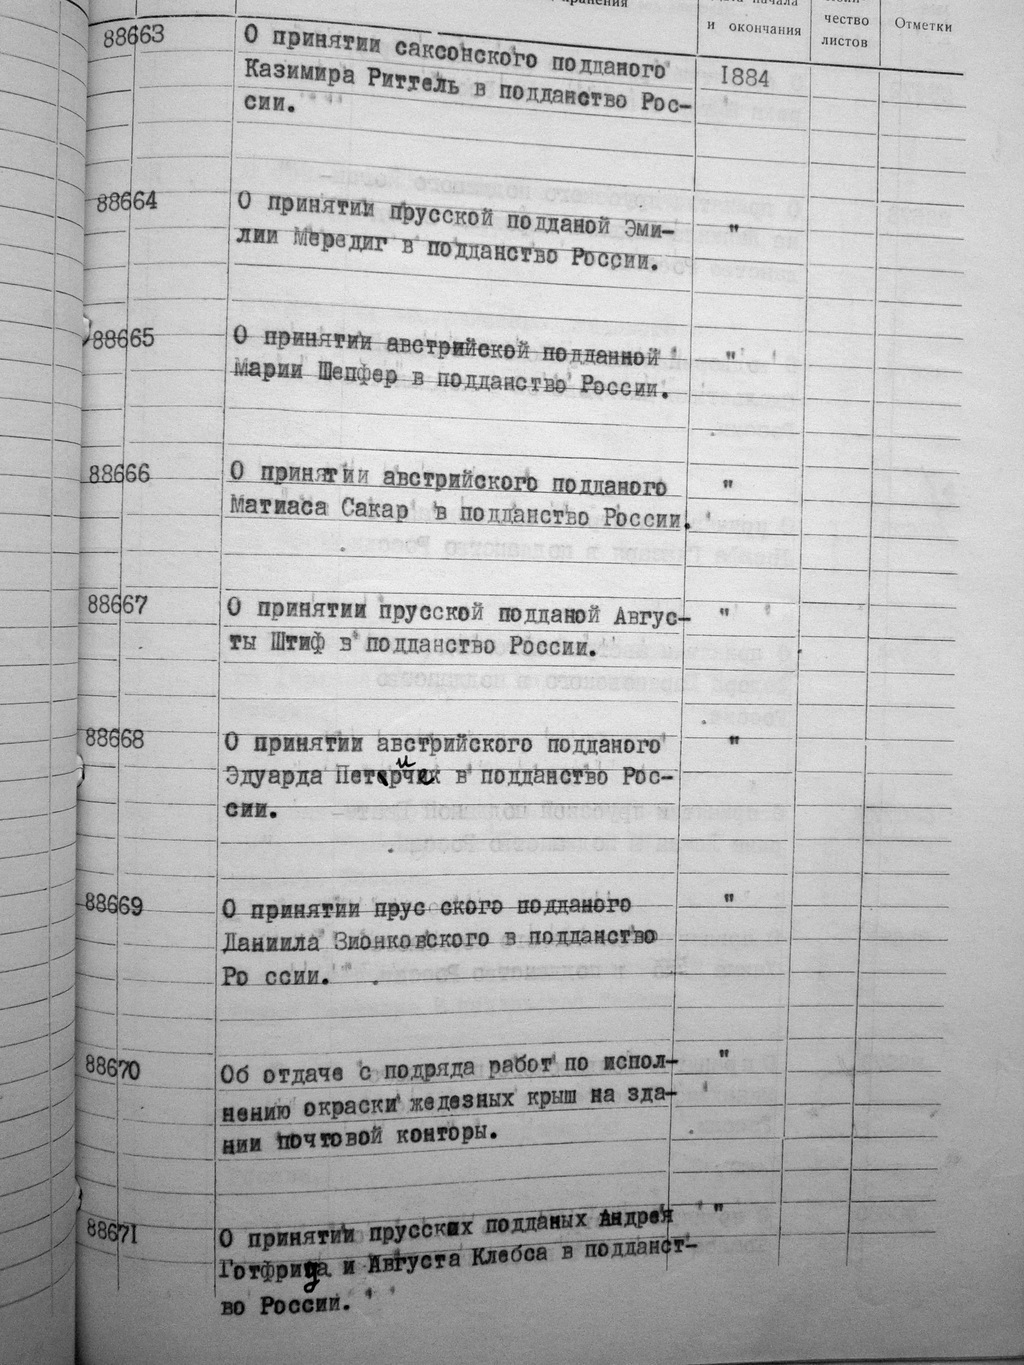 и окончания
чество
листов
Отметки
88663
О принятии саксонского подданого
1884
Казимира Риттель в подданство Рос-
сии.
88664
О принятии прусской подданой Эми-
"
лии Мередиг в подданство России.
88665
О принятии австрийской подданной
"
Марии Шепфер в подданство России.
88666
О принятии австрийского подданого
"
Матиаса Сакар в подданство России.
88667
О принятии прусской подданой Авгус-
"
ты Штиф в подданство России.
88668
О принятии австрийского подданого
"
Эдуарда в подданство Рос-
сии.
88669
О принятии прус ского подданого
"
Даниила Зионковского в подданство
Ро ссии.
88670
Об отдаче с подряда работ по испол-
"
нению окраски железных крыш на зда-
нии почтовой конторы.
88671
О принятии прусских подданых Андрея
"
Готфрида и Августа Клебса в подданст-
во России.